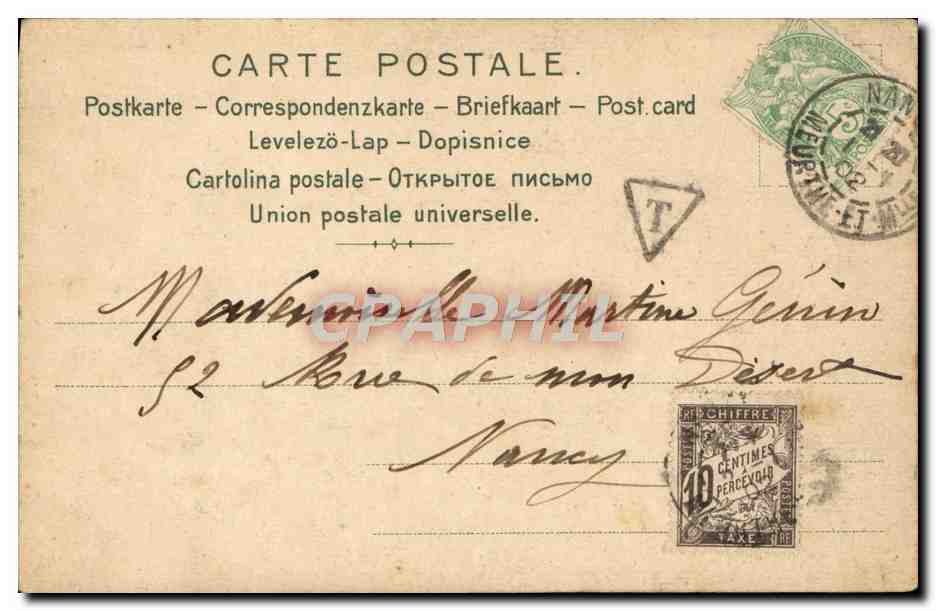 CARTE POSTALE.
Postkarte – Correspondenzkarte – Briefkaart – Post card
Levelező-Lap – Dopisnice
Cartolina postale – Открытое письмо
Union postale universelle.
T
NAN
MEURTHE-ET-M
02
5
Mademoiselle Martine Génin
52 Rue de mon Désert
Nancy
CPAPHIL
RF CHIFFRE
10 CENTIMES
À
PERCEVOIR
POSTES
TAXE RF